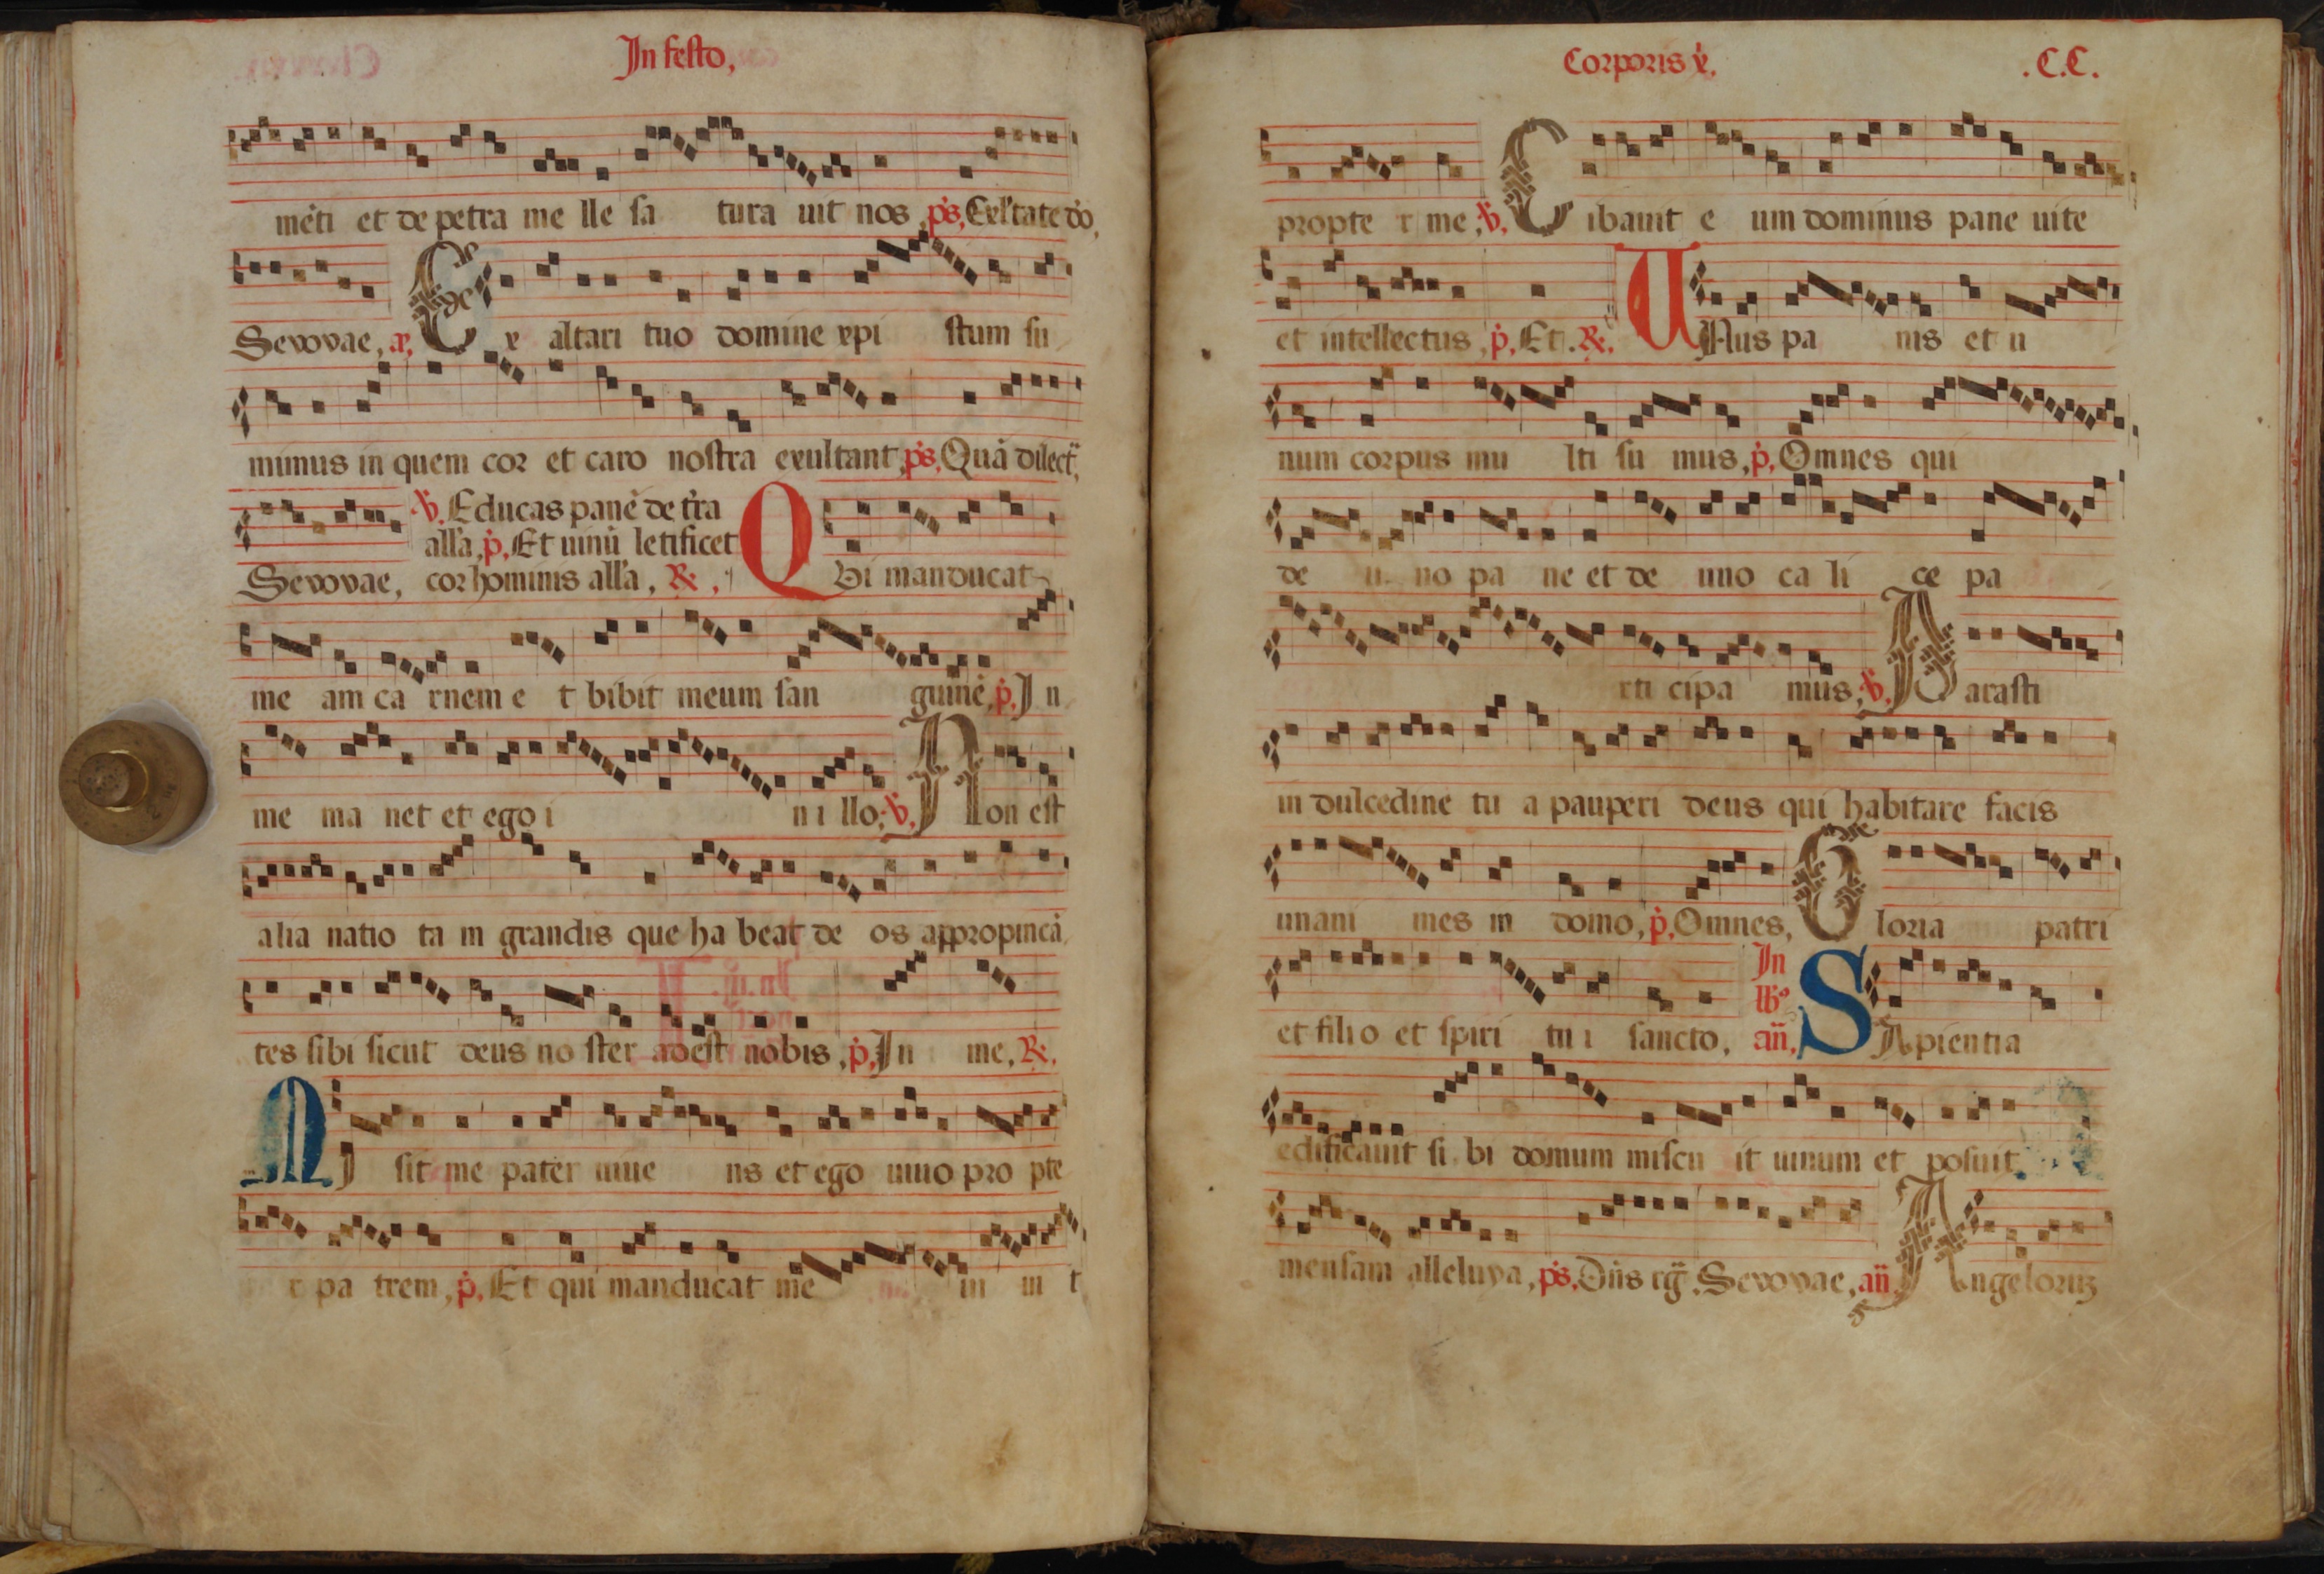 In festo,
mēti et de petra me lle sa tura uit nos, ps, Exl'tate dō,
Sevovae, a, Ex altari tuo domine xpi stum su
mimus in quem cor et caro nostra exultant, ps, Quā dilect,
V. Educas panē de tr̄a
all'a, p, Et uinū letificet
Sevovae, cor hominis all'a, R,
QVi manducat
me am ca rnem e t bibit meum san guinē, p, In
me ma net et ego i n i llo, V, Non est
alia natio ta m grandis que ha beat de os appropincā
tes sibi sicut deus no ster adest nobis, p, In me, R,
MI sit me pater uiue ns et ego uiuo pro pte
r pa trem, p, Et qui manducat me
Corporis x. .C.C.
propte r me, V, Cibauit e um dominus pane uite
et intellectus, p, Et. R, UNus pa nis et u
num corpus mu lti su mus, p, Omnes qui
de u no pa ne et de uno ca li ce pa
rti cipa mus, V, Parasti
in dulcedine tu a pauperi deus qui habitare facis
unani mes in domo, p, Omnes, Gloria patri
et filio et spiri tu i sancto, In lb° añ, SApientia
edificauit si bi domum miscu it uinum et posuit
mensam alleluya, ps, Dñs rg̃. Sevovae, añ Angeloruz